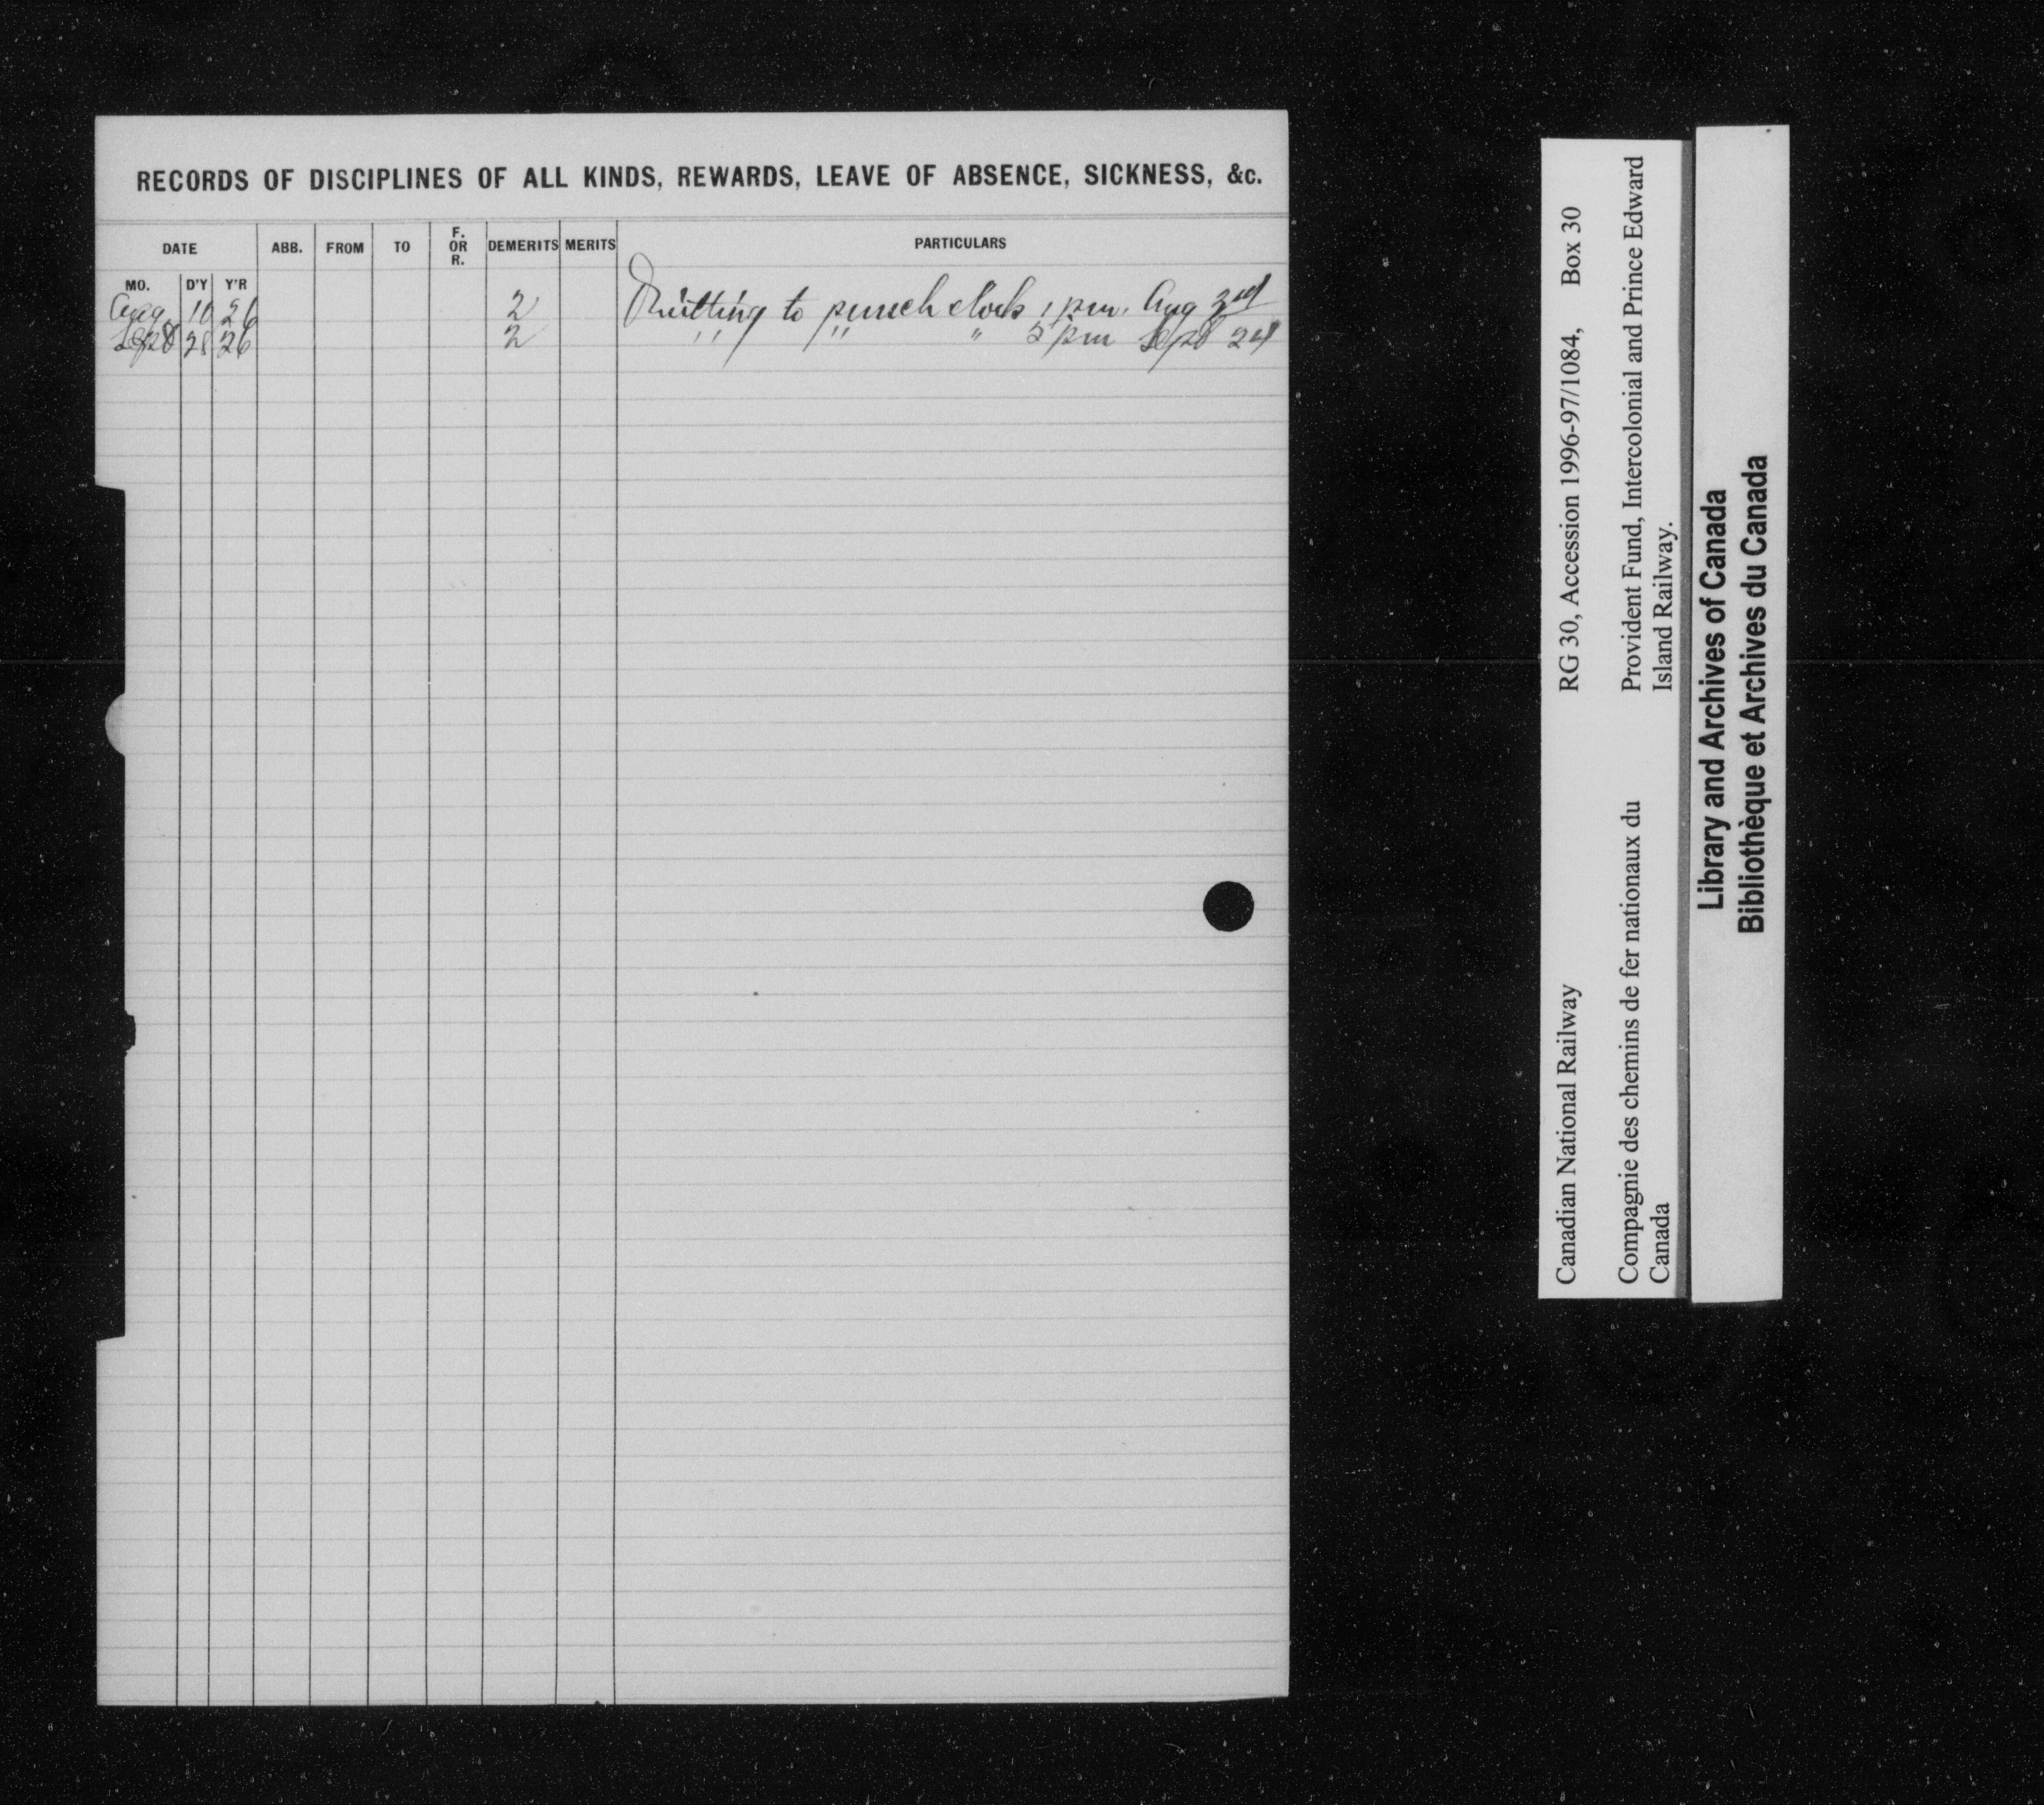 RECORDS OF DISCIPLINES OF ALL KINDS, REWARDS, LEAVE OF ABSENCE, SICKNESS, &c.
DATE ABB. FROM TO F. OR R. DEMERITS MERITS PARTICULARS
MO. D'Y Y'R
Aug 10 26 2 Omitting to punch clock 1 pm. Aug
Sept 28 26 2 " " " 5 pm Sept 24
Canadian National Railway RG 30, Accession 1996-97/1084, Box 30
Compagnie des chemins de fer nationaux du Canada
Provident Fund, Intercolonial and Prince Edward
Island Railway.
Library and Archives of Canada
Bibliothèque et Archives du Canada